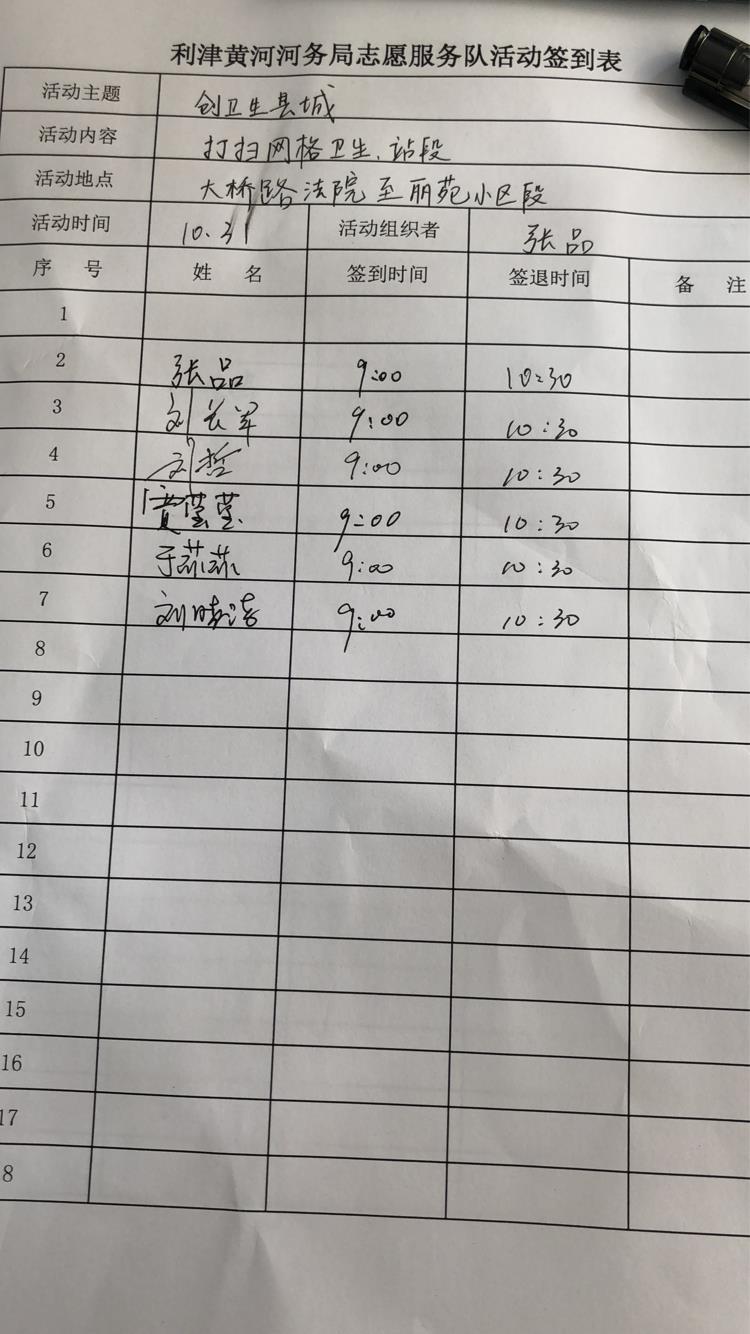 利津黄河河务局志愿服务队活动签到表
活动主题 创卫生县城
活动内容 打扫网格卫生、站段
活动地点 大桥路法院至丽苑小区段
活动时间 10.31 活动组织者 张品
序 号 姓 名 签到时间 签退时间 备 注
1
2 张品 9:00 10:30
3 刘长军 9:00 10:30
4 刘哲 9:00 10:30
5 9:00 10:30
6 于蕊蕊 9:00 10:30
7 9:00 10:30
8
9
10
11
12
13
14
15
16
17
8